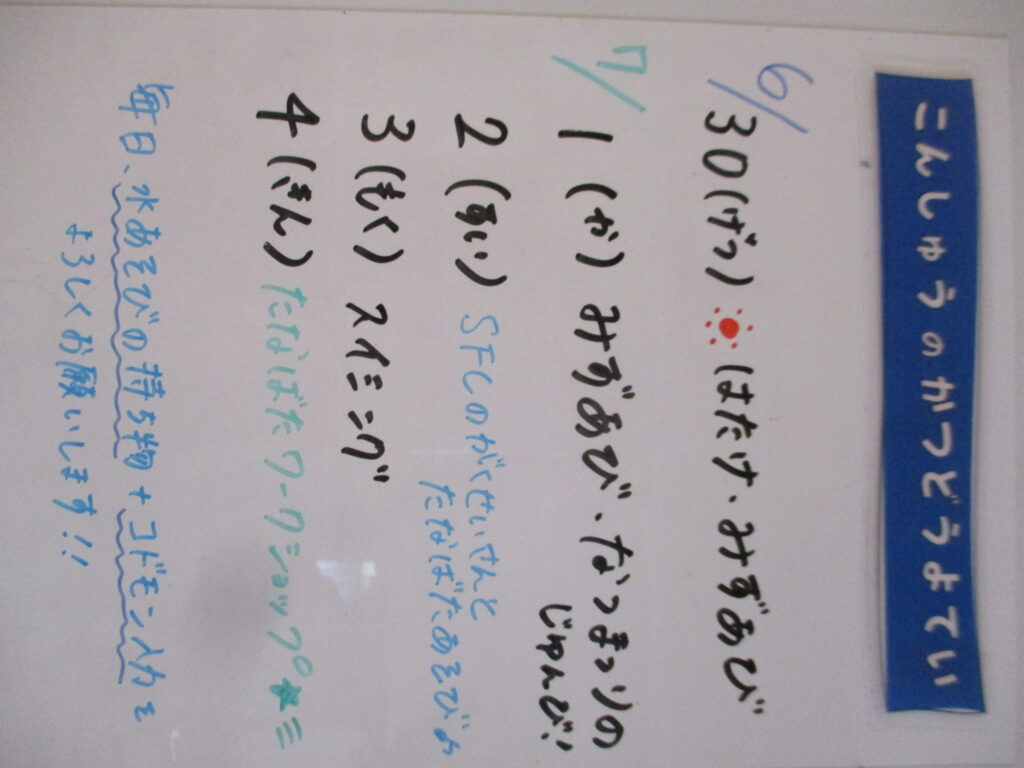 こんしゅうのかつどうよてい
6/30(げつ) はたけ、みずあび
7/1(か) みずあび、なつまつりの
じゅんび!
2(すい) SFCのがくせいさんと
たなばたあそび♪
3(もく) スイミング
4(きん) たなばたワークショップ☆彡
毎日、水あそびの持ち物+コドモン入力を
よろしくお願いします!!